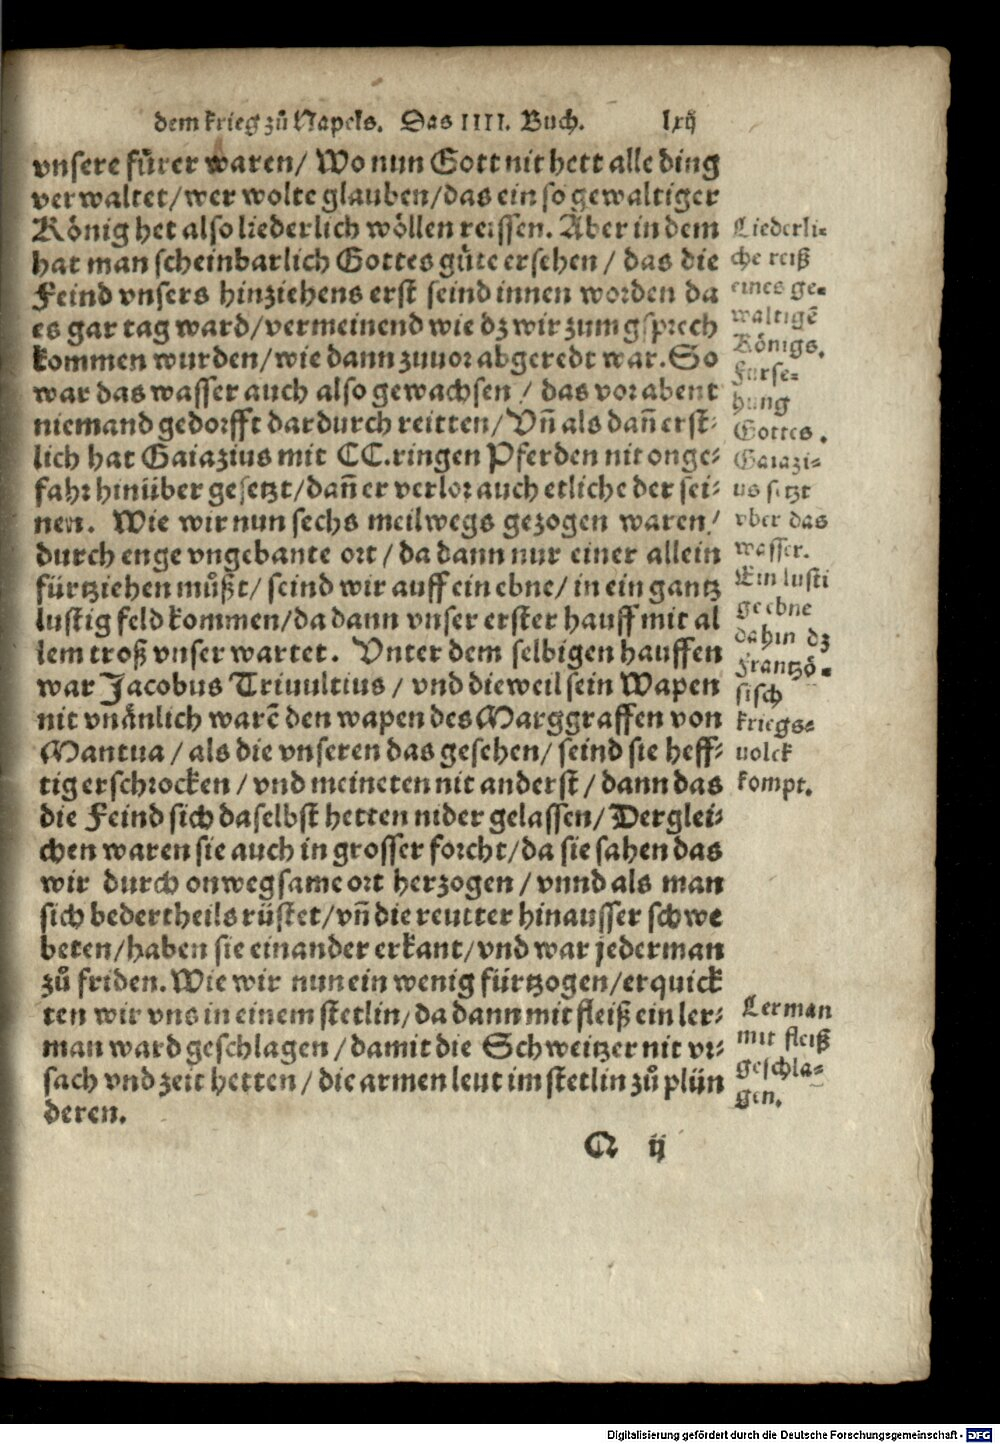 dem krieg zů Napels. Das IIII. Buch. lxij
vnsere fürer waren/ Wo nun Gott nit hett alle ding
verwaltet/wer wolte glauben/das ein so gewaltiger
König het also liederlich wöllen reissen. Aber in dem
hat man scheinbarlich Gottes güte ersehen/ das die
Feind vnsers hinziehens erst seind innen worden da
es gar tag ward/vermeinend wie dz wir zum gsprech
kommen wurden/wie dann zuuor abgeredt war. So
war das wasser auch also gewachsen/ das vor abent
niemand gedorfft dardurch reitten/ Vñ als dañ erst⸗
lich hat Gaiazius mit CC.ringen Pferden nit onge⸗
fahr hinüber gesetzt/dañ er verlor auch etliche der sei⸗
nen. Wie wir nun sechs meilwegs gezogen waren/
durch enge vngebante ort/ da dann nur einer allein
fürtziehen můßt/ seind wir auff ein ebne/ in ein gantz
lustig feld kommen/da dann vnser erster hauff mit al
lem troß vnser wartet. Vnter dem selbigen hauffen
war Jacobus Triuultius/ vnd dieweil sein Wapen
nit vnänlich warẽ den wapen des Marggraffen von
Mantua/ als die vnseren das gesehen/ seind sie heff⸗
tig erschrocken/ vnd meineten nit anderst/ dann das
die Feind sich daselbst hetten nider gelassen/ Derglei⸗
chen waren sie auch in grosser forcht/da sie sahen das
wir durch onwegsame ort herzogen/ vnnd als man
sich bedertheils rüstet/vñ die reutter hinausser schwe
beten/haben sie einander erkant/vnd war jederman
zů friden. Wie wir nun ein wenig fürtzogen/erquick
ten wir vns in einem stetlin/da dann mit fleiß ein ler⸗
man ward geschlagen/ damit die Schweitzer nit vr⸗
sach vnd zeit hetten/ die armen leut im stetlin zů plün
deren.
Q ij
Liederli⸗
che reiß
eines ge⸗
waltigẽ
Königs.
Fürse⸗
hung
Gottes.
Gaiazi⸗
us setzt
vber das
wasser.
Ein lusti
ge ebne
dahin dz
Frantzö⸗
sisch
kriegs⸗
uolck
kompt.
Lerman
mit fleiß
geschla⸗
gen.
Digitalisierung gefördert durch die Deutsche Forschungsgemeinschaft - DFG